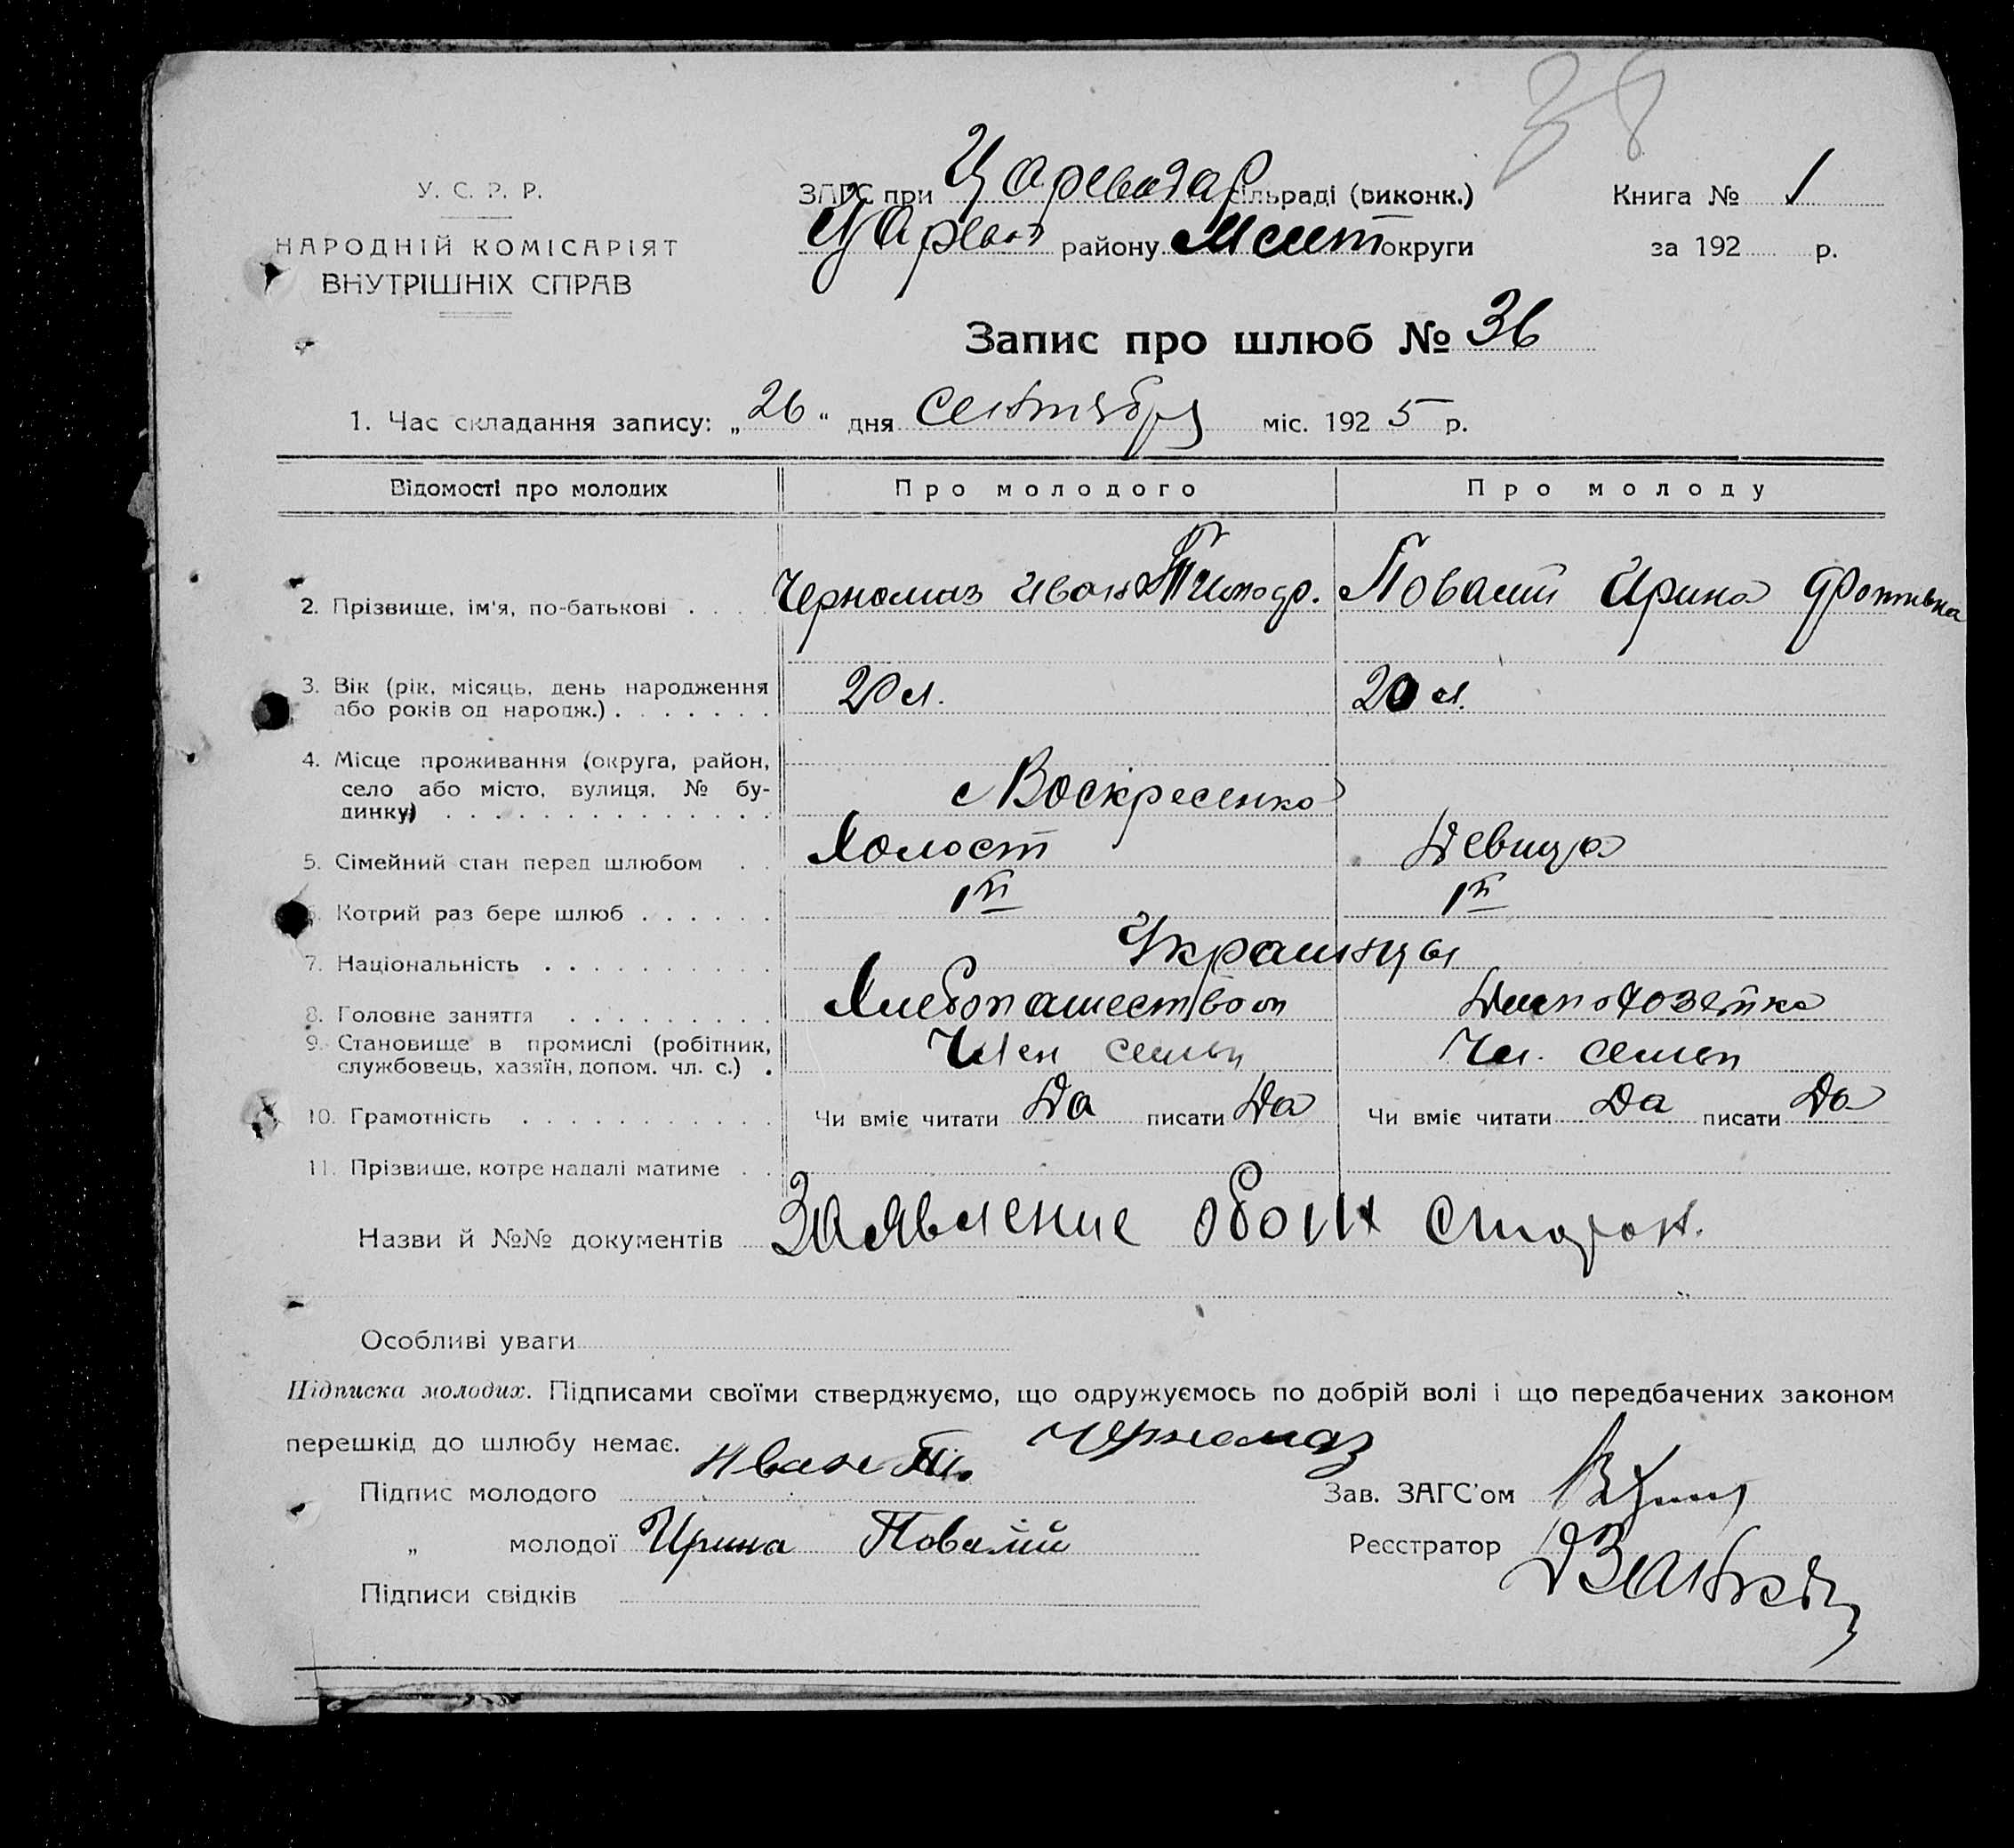 38
У. С. Р. Р.
НАРОДНІЙ КОМІСАРІЯТ
ВНУТРІШНІХ СПРАВ
ЗАГС при Цареводар сільраді (виконк.)
Царевод району Мелит округи
Книга № 1
за 192 р.
Запис про шлюб № 36
1. Час складання запису: „ 26 “ дня Сентября міс. 192 5 р.
Відомості про молодих Про молодого Про молоду
2. Прізвище, ім'я, по-батькові . . . Черномаз Иван Повалий Ирина Фотиевна
3. Вік (рік, місяць, день народження 20 л. 20 л.
або років од народж.) . . . . . . .
4. Місце проживання (округа, район,
село або місто, вулиця, № бу- с Воскресенка
динку) . . . . . . . . . . . . . .
5. Сімейний стан перед шлюбом . . Холост Девица
6. Котрий раз бере шлюб . . . . . . 1й 1й
7. Національність . . . . . . . . . . Украинцы
8. Головне заняття . . . . . . . . . Хлебопашеством Домохозяйка
9. Становище в промислі (робітник, Член семьи Чл. семьи
службовець, хазяїн, допом. чл. с.) .
10. Грамотність . . . . . . . . . . . Чи вміє читати Да писати Да Чи вміє читати Да писати Да
11. Прізвище, котре надалі матиме . .
Назви й №№ документів Заявление обоих сторон.
Особливі уваги
Підписка молодих. Підписами своїми стверджуємо, що одружуємось по добрій волі і що передбачених законом
перешкід до шлюбу немає.
Підпис молодого Иван Ти. Черномаз Зав. ЗАГС'ом
„ молодої Ирина Повалій Реєстратор
Підписи свідків